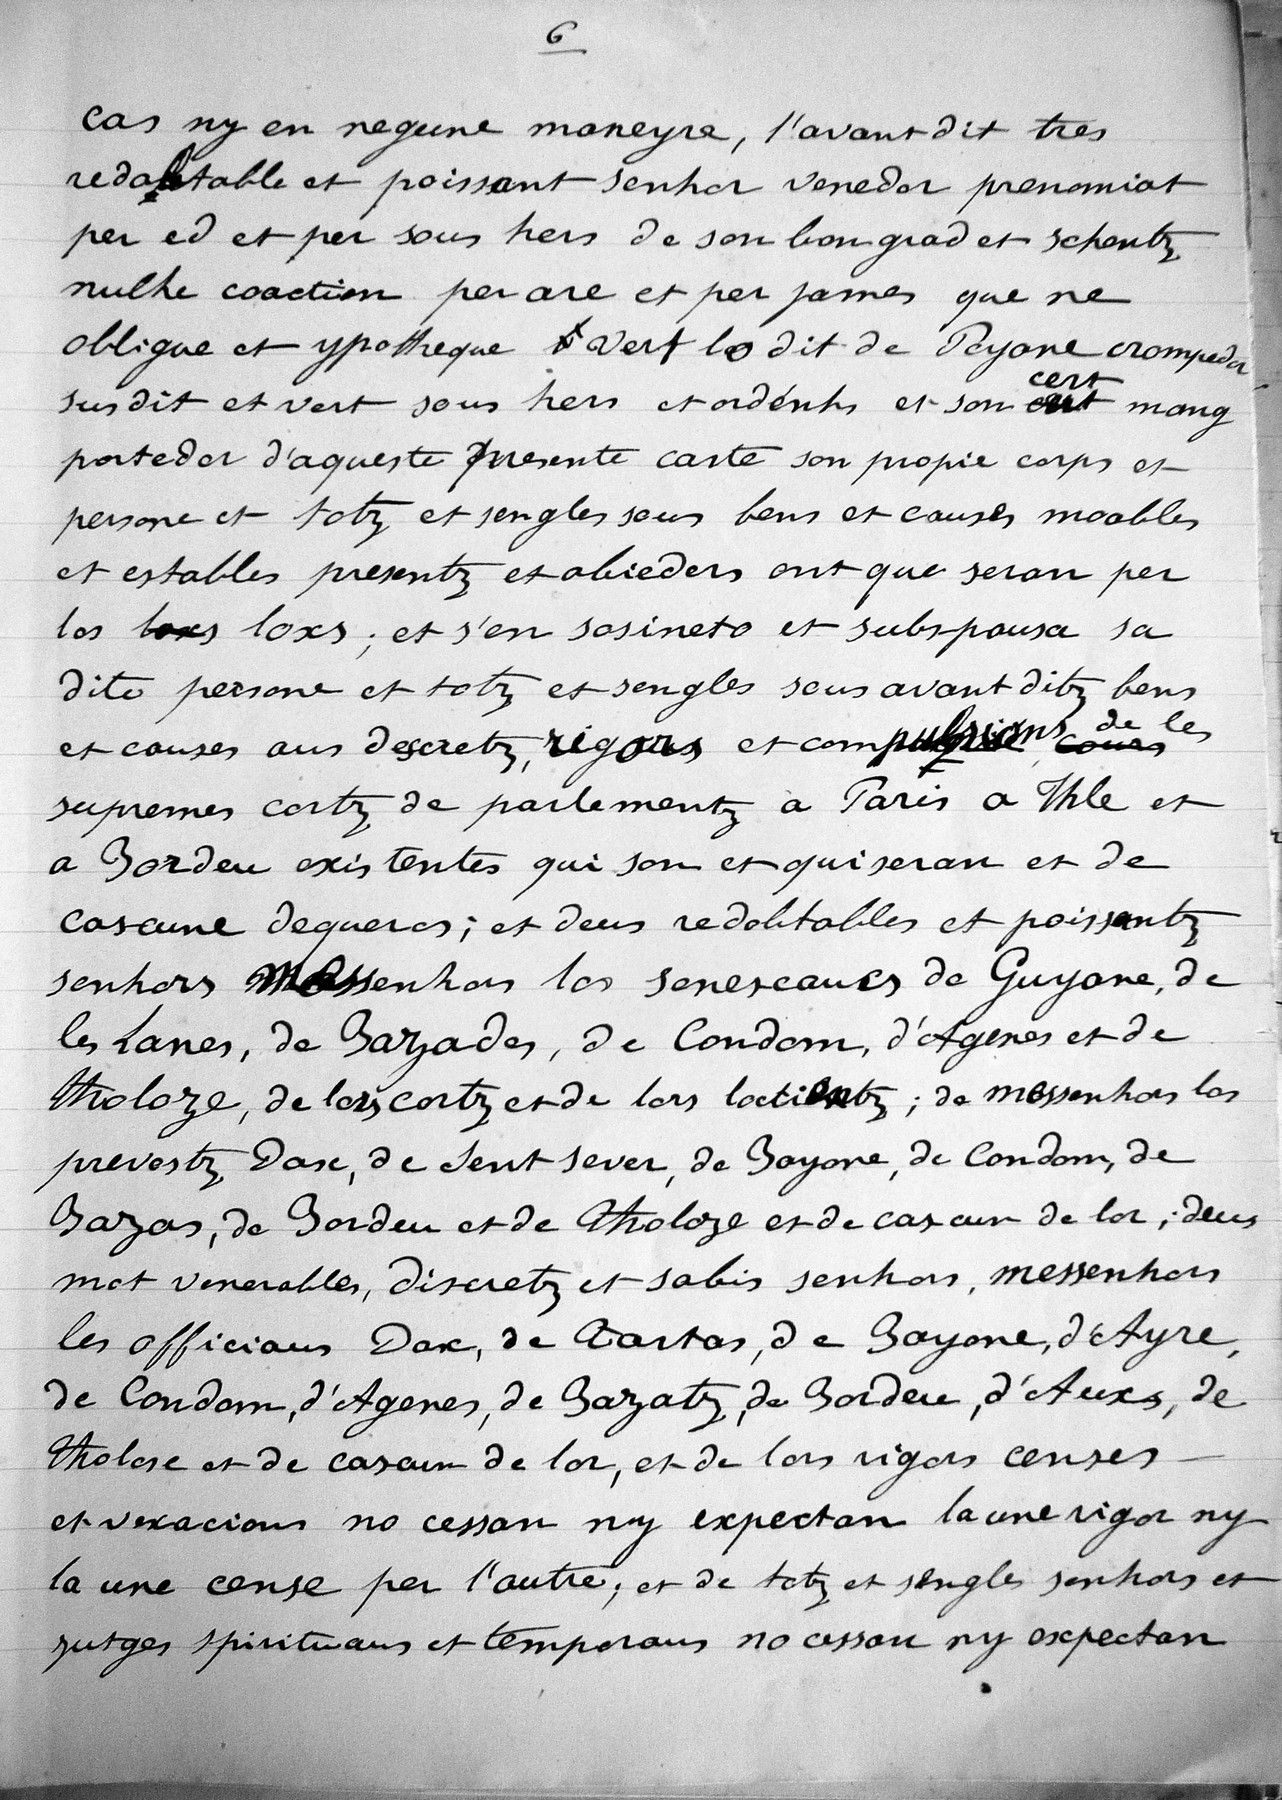 6
cas ny en negune maneyre, l'avant dit tres
redobtable et poissant senhor venedor prenomiat
per ed et per sous hers de son bon grad et schentz
nulhe coaction per are et per james que ne
oblige et ypotheque vert lo dit de Peyone crompedor
susdit et vert sous hers et ordénhs et son cert mang
portedor d'aqueste presente carte son propie corps et
persone et totz et sengles sous bens et causes moables
et estables presentz et abieders ont que seran per
los loxs loxs ; et s'en sosineto et subspousa sa
dite persone et totz et sengles sous avant ditz bens
et causes aus descretz, rigors et compulsions cours de les
supremes cortz de parlementz a Paris a Thle et
a Bordeu existentes qui son et qui seran et de
cascune dequeros ; et deus redobtables et poissantz
senhors Messenhors los senescaues de Guyone, de
les Lanes, de Bazades, de Condom, d'Agenes et de
Tholoze, de lors cortz et de lors loctientz ; de messenhors los
prevostz Dax, de Sent Sever, de Bayone, de Condom, de
Bazas, de Bordeu et de Tholoze et de cascun de lor ; deus
mot venerables, discretz et sabis senhors, messenhors
les officiaus Dax, de Tartas, de Bayone, d'Ayre,
de Condom, d'Agenes, de Bazatz, de Bordeu, d'Auxs, de
Tholose et de cascun de lor, et de lors rigors censes
et vexacions no cessan ny expectan la une rigor ny
la une cense per l'autre ; et de totz et sengles senhors et
jutges spirituaus et temporaus no cessan ny expectan